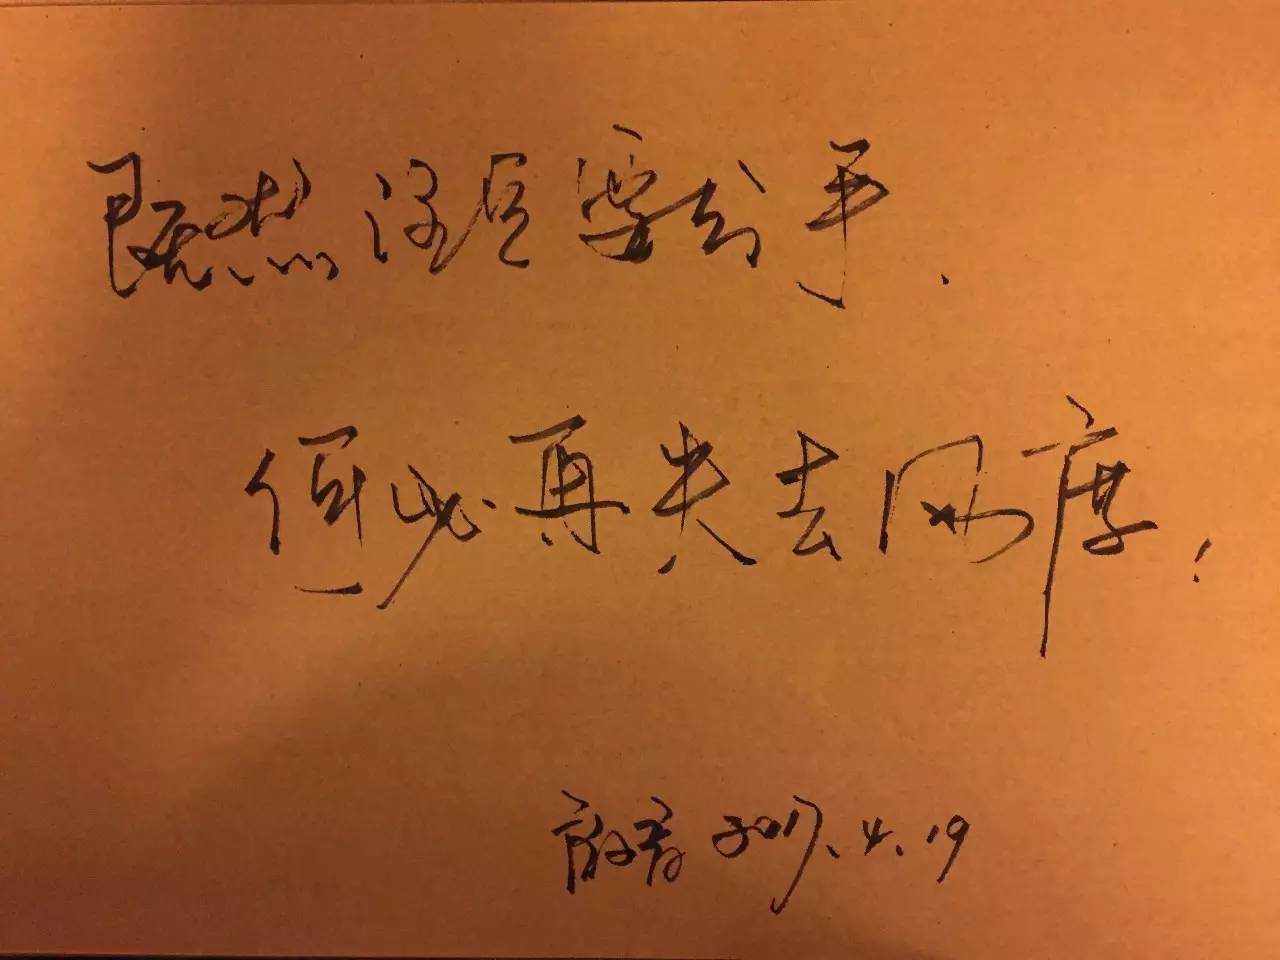 既然要分手.
何必再失去风度.
2017.4.19